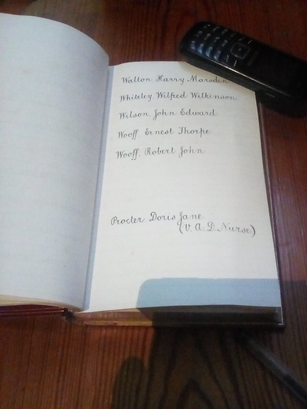 Walton Harry Marsden
Whiteley Wilfred Wilkinson
Wilson, John Edward
Wooff Ernest Thorpe
Wooff, Robert John
Procter Doris Jane
(V. A. D. Nurse)